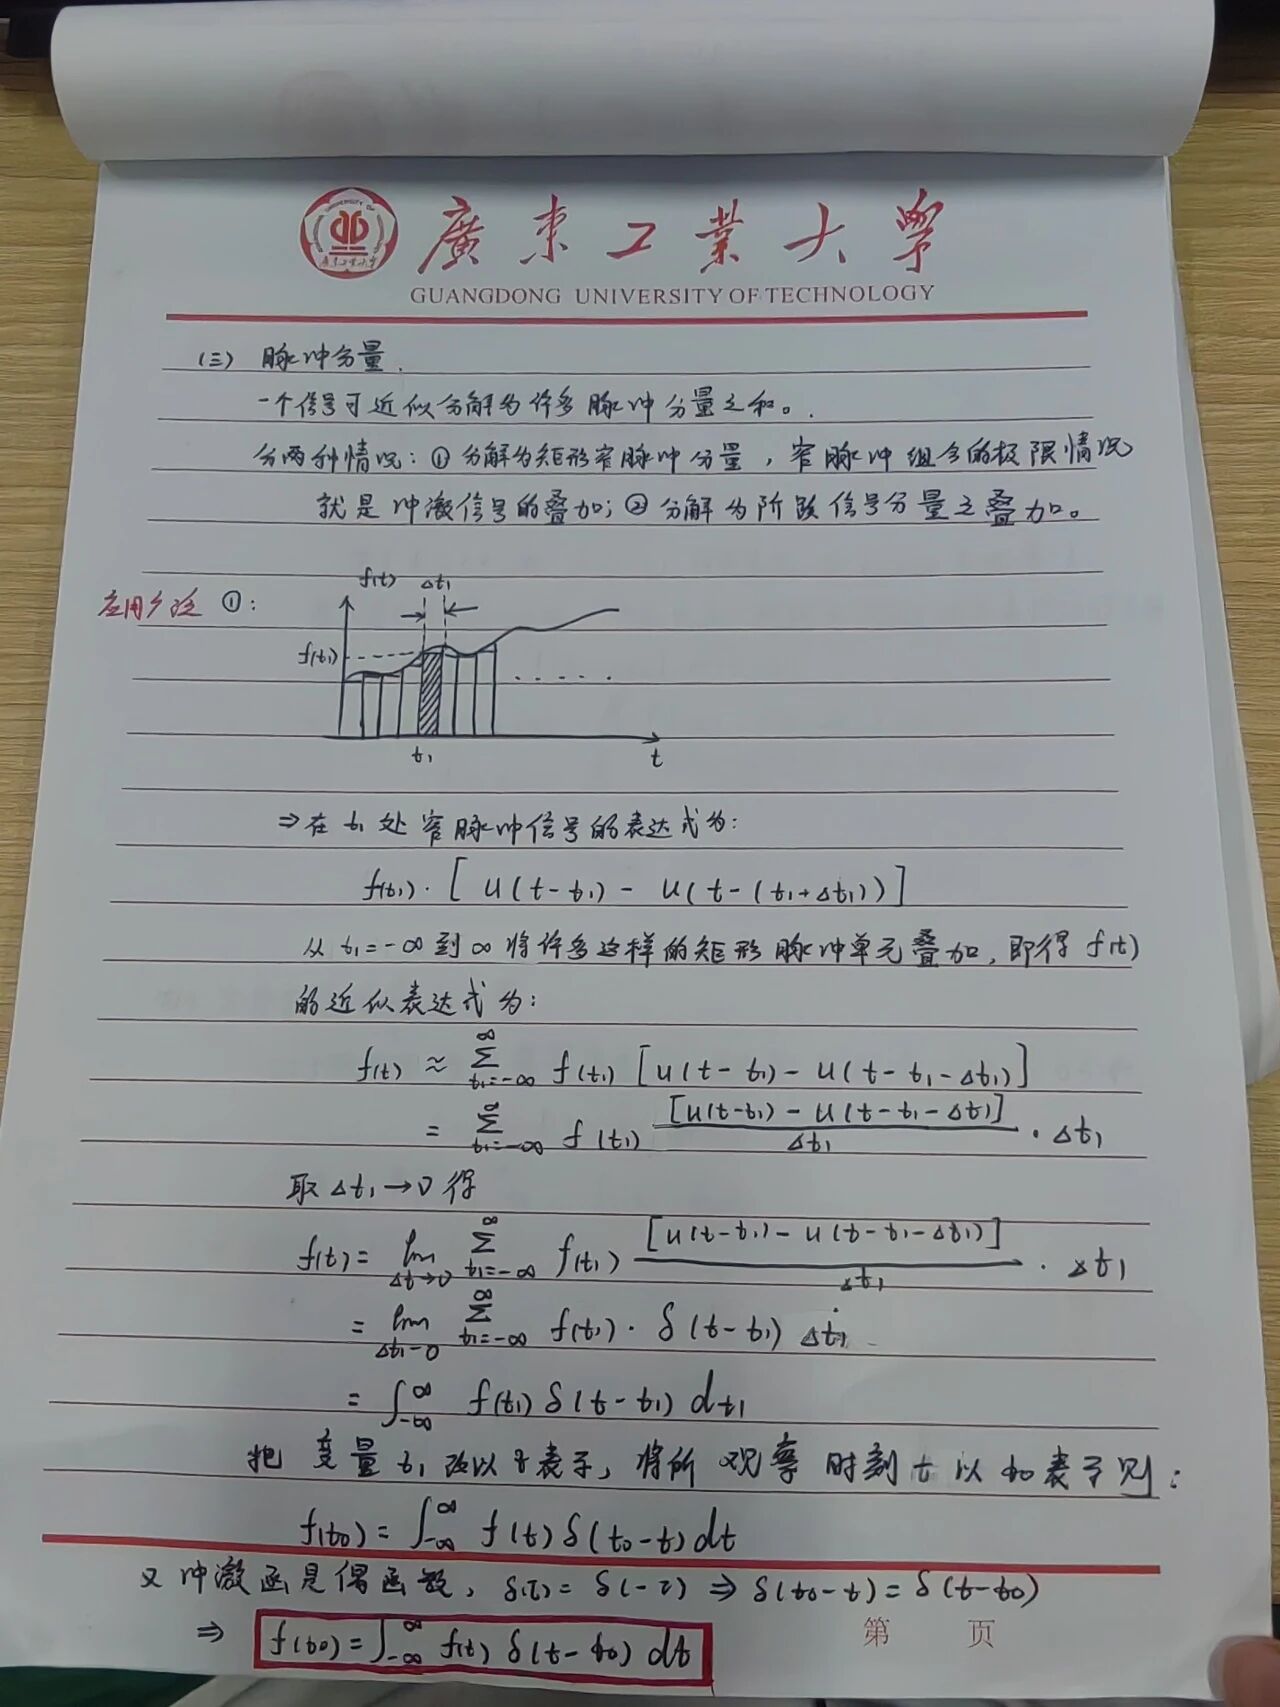 廣東工業大學
GUANGDONG UNIVERSITY OF TECHNOLOGY
(三) 脉冲分量.
一个信号可近似分解为许多脉冲分量之和。
分两种情况: ① 分解为矩形窄脉冲分量, 窄脉冲组合的极限情况
就是冲激信号的叠加; ② 分解为阶跃信号分量之叠加。
f(t) Δt₁
①:
f(t₁)
. . . . . .
t₁ t
⇒ 在 t₁ 处窄脉冲信号的表达式为:
f(t₁)·[u(t-t₁) - u(t-(t₁+Δt₁))]
从 t₁=-∞ 到 ∞ 将许多这样的矩形脉冲单元叠加, 即得 f(t)
的近似表达式为:
f(t) ≈ ∑_{t₁=-∞}^{∞} f(t₁) [u(t-t₁) - u(t-t₁-Δt₁)]
= ∑_{t₁=-∞}^{∞} f(t₁) [u(t-t₁) - u(t-t₁-Δt₁)]/Δt₁ · Δt₁
取 Δt₁→0 得
f(t) = lim_{Δt→0} ∑_{t₁=-∞}^{∞} f(t₁) [u(t-t₁) - u(t-t₁-Δt₁)]/Δt₁ · Δt₁
= lim_{Δt₁→0} ∑_{t₁=-∞}^{∞} f(t₁)·δ(t-t₁) Δt₁
= ∫_{-∞}^{∞} f(t₁) δ(t-t₁) dt₁
把变量 t₁ 改以 t 表示, 将所观察时刻 t 以 t₀ 表示则:
f(t₀) = ∫_{-∞}^{∞} f(t) δ(t₀-t) dt
又冲激函是偶函数, δ(τ) = δ(-τ) ⇒ δ(t₀-t) = δ(t-t₀)
⇒ f(t₀) = ∫_{-∞}^{∞} f(t) δ(t-t₀) dt
第 页